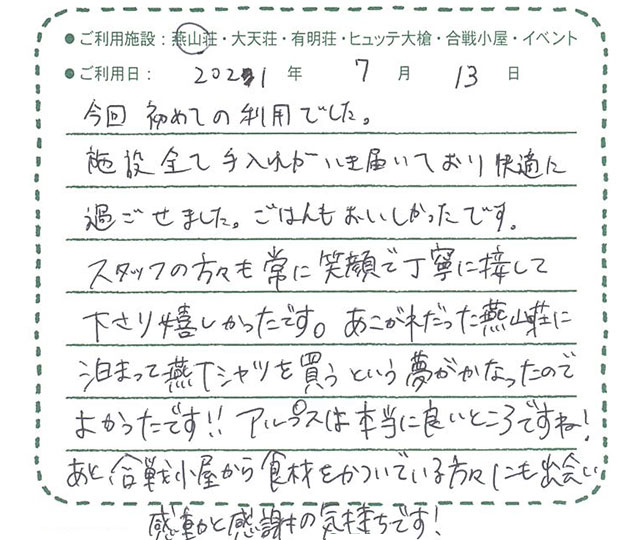 ●ご利用施設：燕山荘・大天荘・有明荘・ヒュッテ大槍・合戦小屋・イベント
●ご利用日： 2021 年 7 月 13 日
今回 初めての利用でした。
施設全て手入れがいき届いており快適に
過ごせました。ごはんもおいしかったです。
スタッフの方々も常に笑顔で丁寧に接して
下さり嬉しかったです。あこがれだった燕山荘に
泊まって燕Tシャツを買うという夢がかなったので
よかったです!! アルプスは本当に良いところですね!
あと合戦小屋から食材をかついでいる方々にも出会い
感動と感謝の気持ちです!